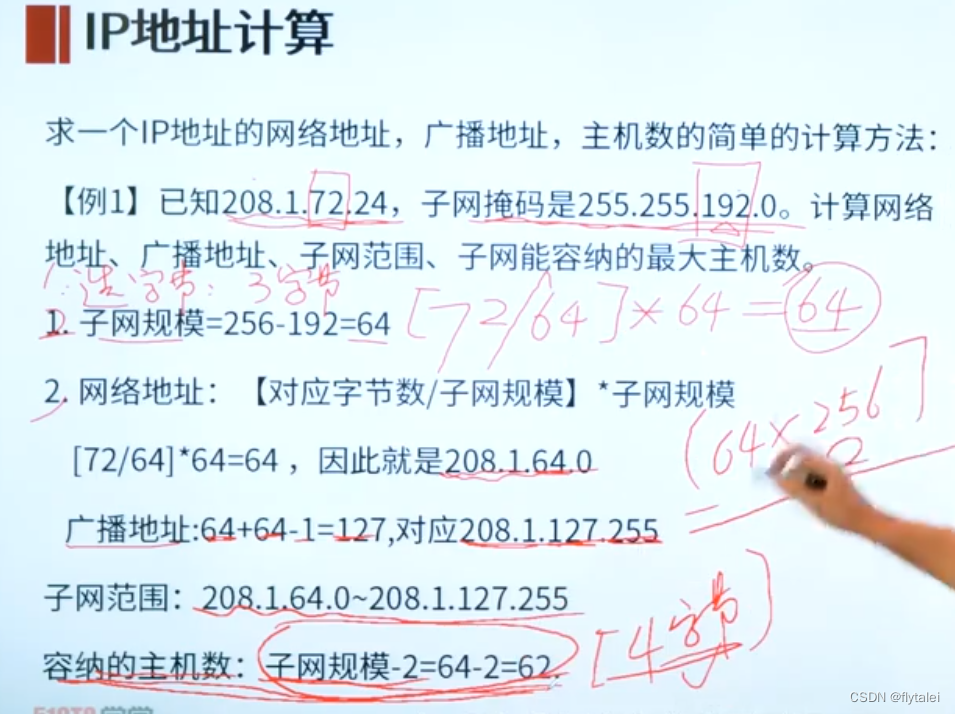 IP地址计算
求一个IP地址的网络地址，广播地址，主机数的简单的计算方法：
【例1】已知208.1.72.24，子网掩码是255.255.192.0。计算网络
地址、广播地址、子网范围、子网能容纳的最大主机数。
1. 选字节：3字节
1. 子网规模=256-192=64 [72/64]×64=64
2. 网络地址：【对应字节数/子网规模】*子网规模
(64×256]
[72/64]*64=64，因此就是208.1.64.0
2
广播地址:64+64-1=127,对应208.1.127.255
子网范围：208.1.64.0~208.1.127.255
容纳的主机数：子网规模-2=64-2=62. [4字节]
CSDN @flytalei